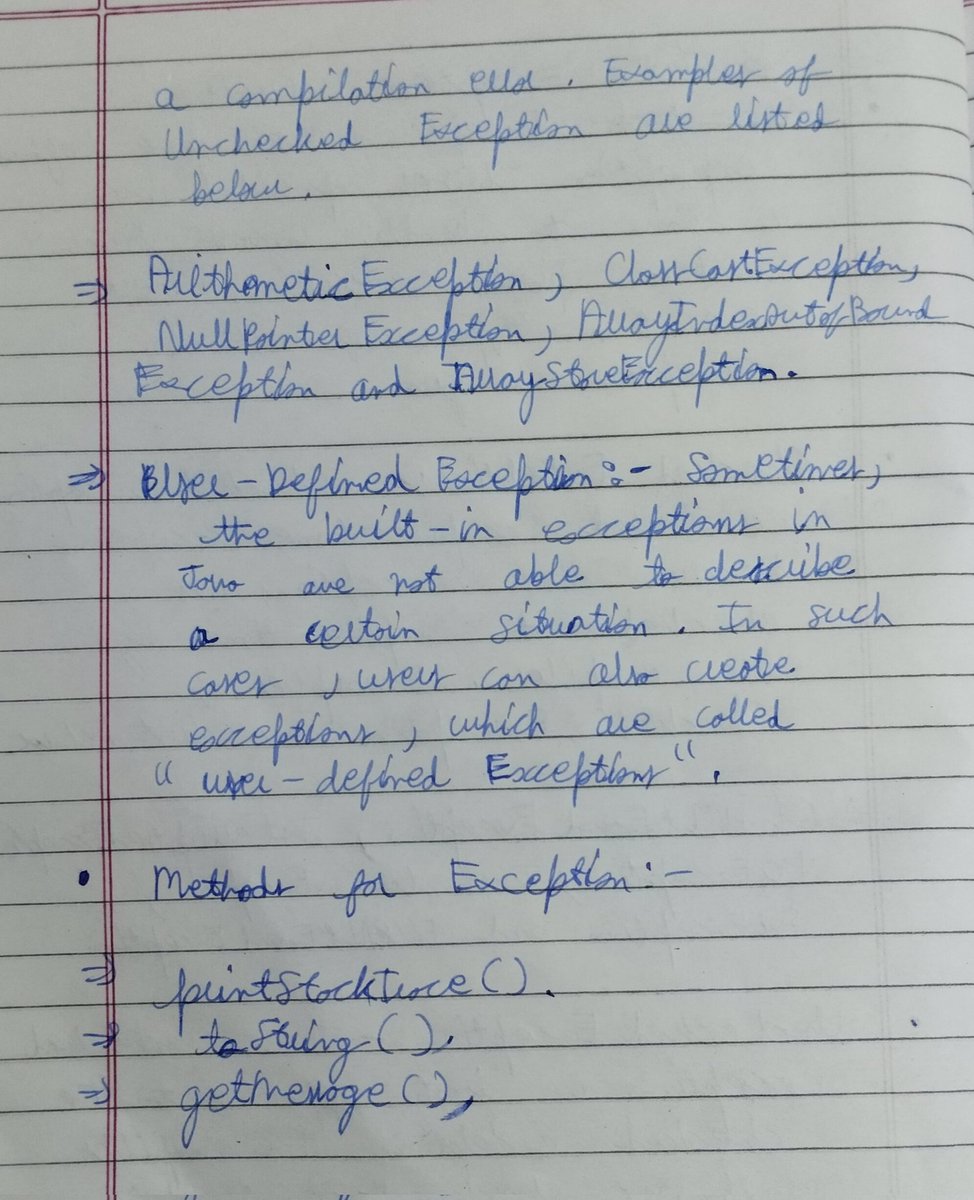 a compilation error. Examples of
Unchecked Exception are listed
below.
⇒ ArithemeticException, ClassCastException,
NullPointerException, ArrayIndexOutofBound
Exception and ArrayStoreException.
⇒ User-Defined Exception:- Sometimes,
the built-in exceptions in
Java are not able to describe
a certain situation. In such
cases, users can also create
exceptions, which are called
"user-defined Exceptions".
• Methods for Exception:-
⇒ printStackTrace().
⇒ toString(),
⇒ getMessage(),